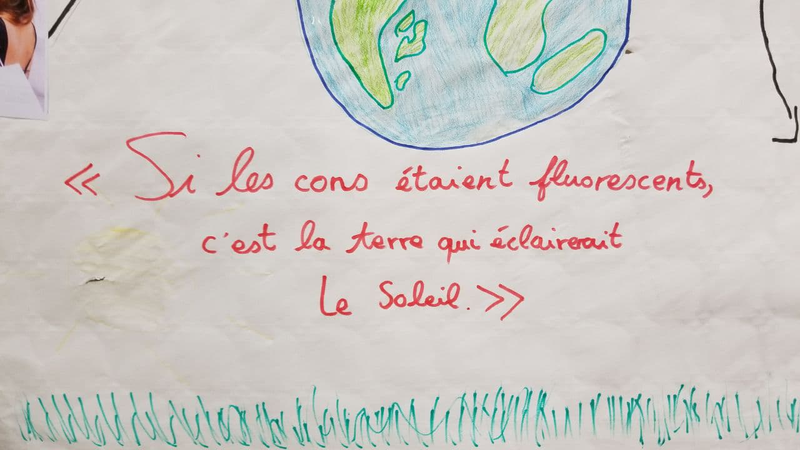 « Si les cons étaient fluorescents,
c'est la terre qui éclairerait
Le Soleil. »